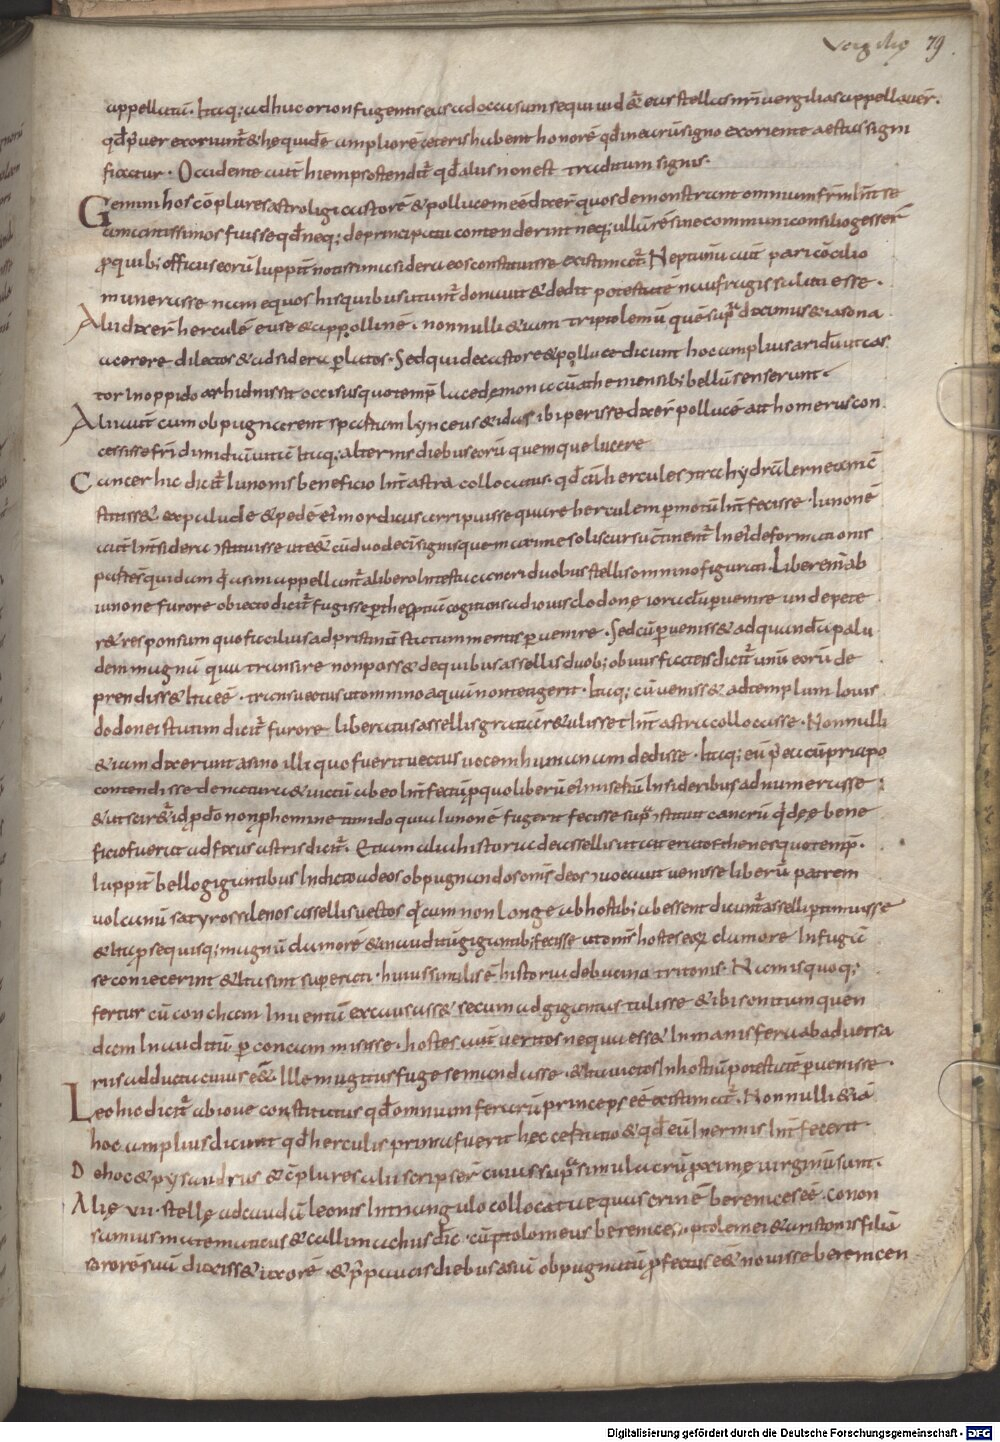 Vergilię 79.
appellatā. Itaq; adhuc orion fugentis eas ad occasum sequi uid&̄. eas stellas nr̄i uergilias appellauer̄.
qđ p̄ uer exoriunt̄ & he quidē ampliorē ceteris habent honorē qđ in earū signo exoriente aestas signi
ficatur. Occidente aut̄ hiemps ostendit̄ qđ aliis non est traditum signis.
Gemini hos cōplures astroligi castorē & pollucem eē dixer̄ quos demonstrant omnium fr̄m int̄ se
amantissimos fuisse qđ neq; de principatu contenderint neq; ullā rē sine communi consilio gesser̄
p̄ quib; officiis eorū Iuppit̄ notissima sidera eos constituisse existimat̄. Neptunū aut̄ pari cōcilio
munerasse nam equos his quibus utunt̄ donauit & dedit potestatē naufragis saluti esse.
Alii dixer̄ herculē esse & appollinē. nonnulli & iam triptolemū quē supͣ diximus & iasona
a cerere dilectos & ad sidera p̄latos. Sed qui de castore & polluce dicunt hoc amplius aridunt cas
tor in oppido arhidnis sit occisus quo temp̄ lacedemonia cū athemensib; bellū senserunt.
Alii aut̄ cum obpugnarent spartam lynceus & idas ibi perisse dixer̄ pollucē ait homerus con
cessisse fr̄i dimidiā uitā Itaq; alternis diebus eorū quemque lucere
Cancer hic dicit̄ Iunonis beneficio int̄ astra collocatus. qđ cū hercules ɔtra hydrā lerneam c̄
stitiss& ex palude & pedē ei mordicus arripuisse quare herculem p̄motū int̄fecisse. Iunonē
aut̄ int̄ sidera ɔstituisse ut e&̄ cū duodecī signis que maxime solis cursu ɔtinent̄ In ei deformationis
parte s̄ quidam q̄ asini appellant̄ a libero In testa cancri duobus stellis omnino figurati. Liberem ab
iunone furore obiecto dicit̄ fugisse p̄ thesprotiam cogitans ad iouis dodonę ioraclū p̄uenire unde pete
r& responsum quo facilius ad pristinū statum mentis p̄uenire. Sed cū p̄ueniss& ad quandā palu
dem magnā quā transire non poss& de quibus asellis duob; obuiis factis dicit̄ unū eorū de
prendiss& Ita eē. transuectus ut omnino aquā non tetigerit. Itaq; cū ueniss& ad templum Iouis
dodonei statim dicit̄ furore liberatus assellis gratiā r&ulisse & int̄ astra collocasse. Nonnulli
& iam dixerunt asino illi quo fuerit uectus uocem humanam dedisse. Itaq; eū p̄ ea cū priapo
contendisse de natura & uictū ab eo Int̄fectū p̄ quo liberū ei misertū In sideribus adnumerasse;
& ut scir&̄ id p̄ do non p̄ homine timido quia Iunonē fugerit fecisse supͣ ɔstituit cancrū q̄ deę bene
ficio fuerat adfixus astris dicit̄. Etiam alia historia de assellis ut ait eratosthenes quo temp̄.
Iuppit̄ bello gigantibus Indicto ad eos obpugnandos om̄s deos ɔuocauit uenisse liberū patrem
uolcanū satyros silenos assellis uectos q̄ cum non longe ab hostib; abessent dicunt̄ asselli p̄timuisse
& ita p̄ se quisq; magnū clamorē & inauditū gigantib; fecisse ut om̄s hostes eoꝝ clamore In fugā
se coniecerint & ita sint superati. huius similis ē historia de bucina tritonis. Nam is quoq;
fertur cū concham Inuentā excauass& secum ad gigantas tulisse & ibi sonitum quen
dam Inauditū p̄ concam misisse. hostes aut̄ ueritos ne qua ess& Inmanis fera ab aduersa
riis adducta cuius e&̄ Ille mugitus fuge se mandasse. & ita uictos In hostiū potestatē p̄uenisse.
Leo hic dicit̄ a bioue constitutus qđ omnium ferarū princeps eē existimat̄. Nonnulli & iā
hoc amplius dicunt qđ herculis prima fuerit hec certatio & qđ eū Inermis Int̄fecerit.
De hoc & pysandrus & cōplures alii scripser̄ cuius supͣ simulacrū p̄xime uirginis sunt.
Alię vii. stellę ad caudā leonis In triangulo collocatae quas crinē berenices eē. conon
samius matematicus & callimachus dic̄. cū ptolomeus berenices ptolemei & arsionis filiā
sororē suā duxiss& uxorē. & p̄ paucis diebus asiā obpugnatū p̄fectus e&̄ nouisse berenicen
Digitalisierung gefördert durch die Deutsche Forschungsgemeinschaft - DFG